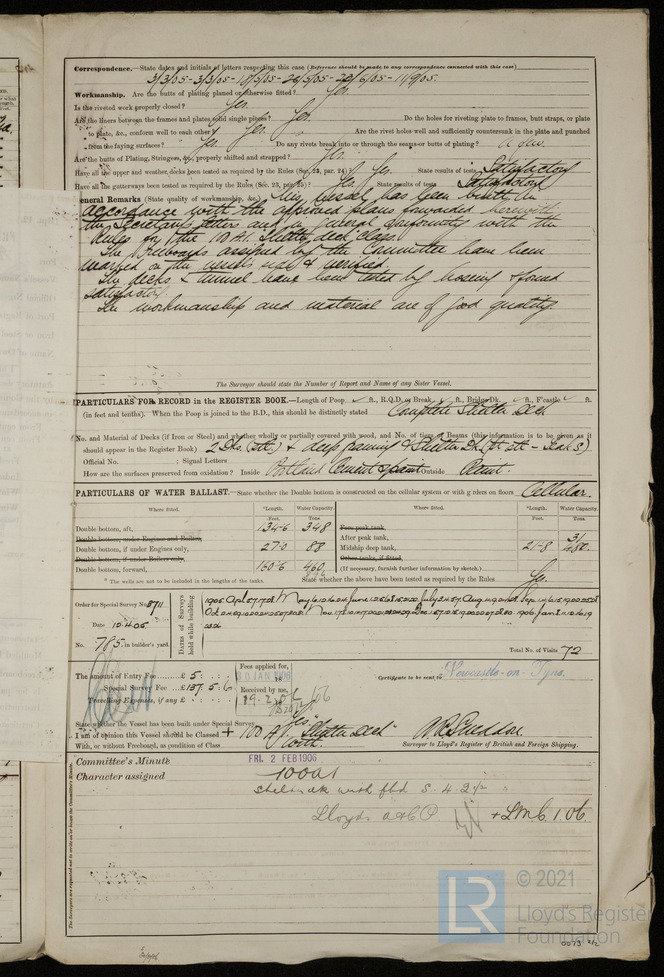 Correspondence.—State dates and initials of letters respecting this case (Reference should be made to any correspondence connected with this case)
3/3/05 - 3/3/05 - 18/5/05 - 11/9/05.
Workmanship. Are the butts of plating planed or otherwise fitted? Yes.
Is the riveted work properly closed? Yes.
Are the liners between the frames and plates solid single pieces? Yes. Do the holes for riveting plate to frames, butt straps, or plate
to plate, &c., conform well to each other? Yes. Are the rivet holes well and sufficiently countersunk in the plate and punched
from the faying surfaces? Yes. Do any rivets break into or through the seams or butts of plating? a few.
Are the butts of Plating, Stringers, &c, properly shifted and strapped? Yes.
Have all the upper and weather decks been tested as required by the Rules (Sec. 23, par. 24)? Yes. State results of tests Satisfactory
Have all the gutterways been tested as required by the Rules (Sec. 23, par. 25)? Yes. State results of tests Satisfactory
General Remarks (State quality of workmanship, &c.) This vessel has been built in
accordance with the approved plans forwarded herewith
the Secretary's letters and in general conformity with the
Rules for the 100 A1. Shelter deck Class.
The Freeboards assigned by the Committee have been
marked on the vessels sides & verified.
The decks & tunnel have been tested by hosing & found
satisfactory.
The workmanship and material are of good quality.
The Surveyor should state the Number of Report and Name of any Sister Vessel.
PARTICULARS FOR RECORD in the REGISTER BOOK.—Length of Poop ft., R.Q.D. or Break ft., Bridge Dk. ft., F'castle ft.
(in feet and tenths). When the Poop is joined to the B.D., this should be distinctly stated Complete Shelter Deck
No. and Material of Decks (if Iron or Steel) and whether wholly or partially covered with wood, and No. of tiers of Beams (this information is to be given as it
should appear in the Register Book) 2 Dks. (stl.) & deep framing & Shelter Dk.
Official No. ; Signal Letters
How are the surfaces preserved from oxidation? Inside Portland Cement & paint Outside Paint.
PARTICULARS OF WATER BALLAST.—State whether the Double bottom is constructed on the cellular system or with girders on floors Cellular.
Where fitted. *Length. Water Capacity. Where fitted. *Length. Water Capacity.
Feet. Tons. Feet. Tons.
Double bottom, aft, 134·6 348 Fore peak tank,
Double bottom, under Engines and Boilers, After peak tank, 31
Double bottom, if under Engines only, 27·0 88 Midship deep tank, 21·8 480.
Double bottom, if under Boilers only, Other tanks, if fitted,
Double bottom, forward, 160·6 460 (If necessary, furnish further information by sketch.)
* The wells are not to be included in the lengths of the tanks. State whether the above have been tested as required by the Rules Yes.
Order for Special Survey No. 3711
Date 12·4·05
No. 785 in builder's yard.
Dates of Surveys held while building
Total No. of Visits 72
The amount of Entry Fee £ 5 : : Fees applied for,
30 JAN 1906
Special Survey Fee £ 137 : 5 : 6 Received by me,
Travelling Expenses, if any £ : :
Certificate to be sent to Newcastle-on-Tyne.
State whether the Vessel has been built under Special Survey Yes.
I am of opinion this Vessel should be Classed + 100 A1. "Shelter Deck"
With, or without Freeboard, as condition of Class With.
Surveyor to Lloyd's Register of British and Foreign Shipping.
Committee's Minute FRI. 2 FEB 1906
Character assigned 100A1
Shelter dk with fbd 5 - 4 - 2½
Lloyds a & C P. + LMC 1.06
The Surveyors are requested not to write on or below the Committee's Minute.
© 2021
Lloyd's Register
Foundation
LR
0073 2/2